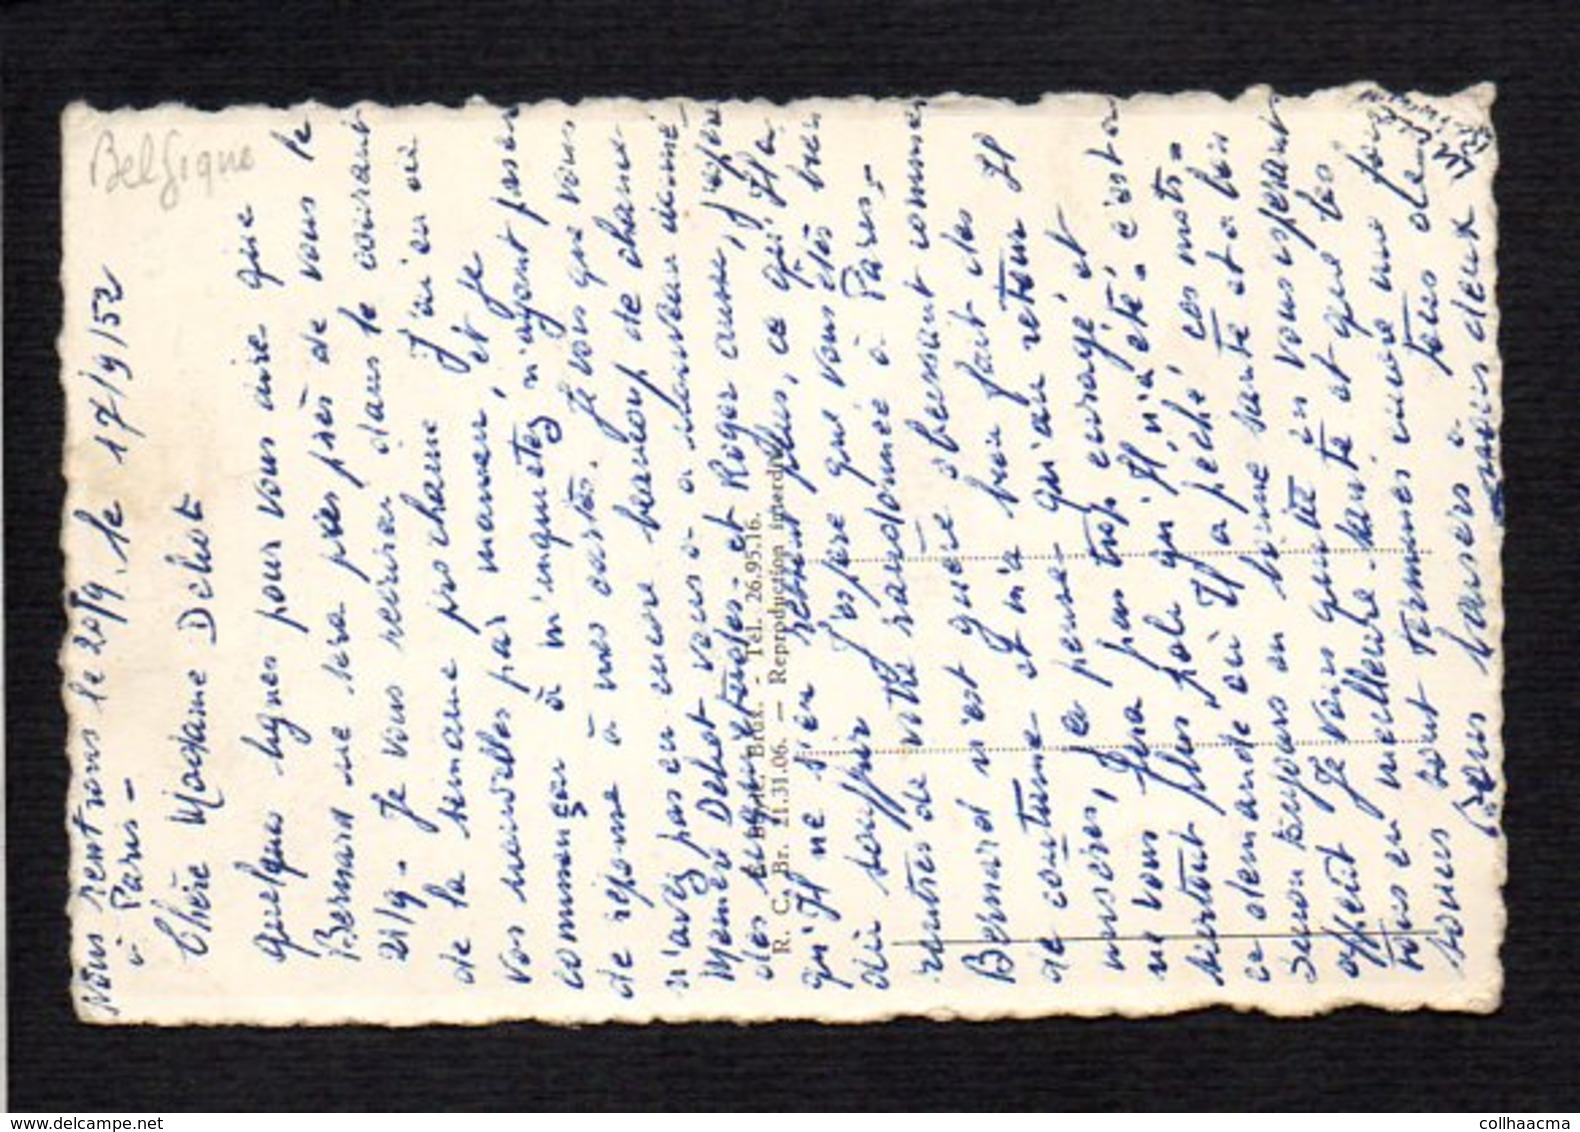 Belgique
Nous rentrons le 20/9. le 17/9/52
à Paris –
Chère Madame Dehot
quelques lignes pour vous dire que
Bernard ne sera pas près de vous le
21/9 - Je vous écrirai dans le courant
de la semaine prochaine J'ai eu
vos nouvelles par maman, et je
commençais à m'inquiétez n'ayant pas eu
de réponse à mes cartes. Je vois que vous
n'avez pas eu encore beaucoup de chance
Mémère Dehot vous a à nouveau
des inquiétudes - et Roger aussi, j'espère
qu'Il ne s'en sent plus, ce qu'Il a
dû souffrir J'espère que vous êtes bien
rentrés de votre randonnée à Paris, -
Bernard n'est guère obéissant comme
de coutume - et m'a bien fait des
misères, je pense - qu'au retour Il
ne vous fera pas trop enragé et
surtout plus poli qu'Il n'a été - c'est à
ce demandé où Il a pêché ces mots -
Suis toujours en bonne santé et a bon
appétit Je vous quitte en vous espérant
tous en meilleure santé et que les
soucis sont terminés
Bons baisers à tous de
nous deux
R. C. Br. 21.31.06. — Reproduction interdite
Brux. - Tél. 26.95.16.
collhaacma